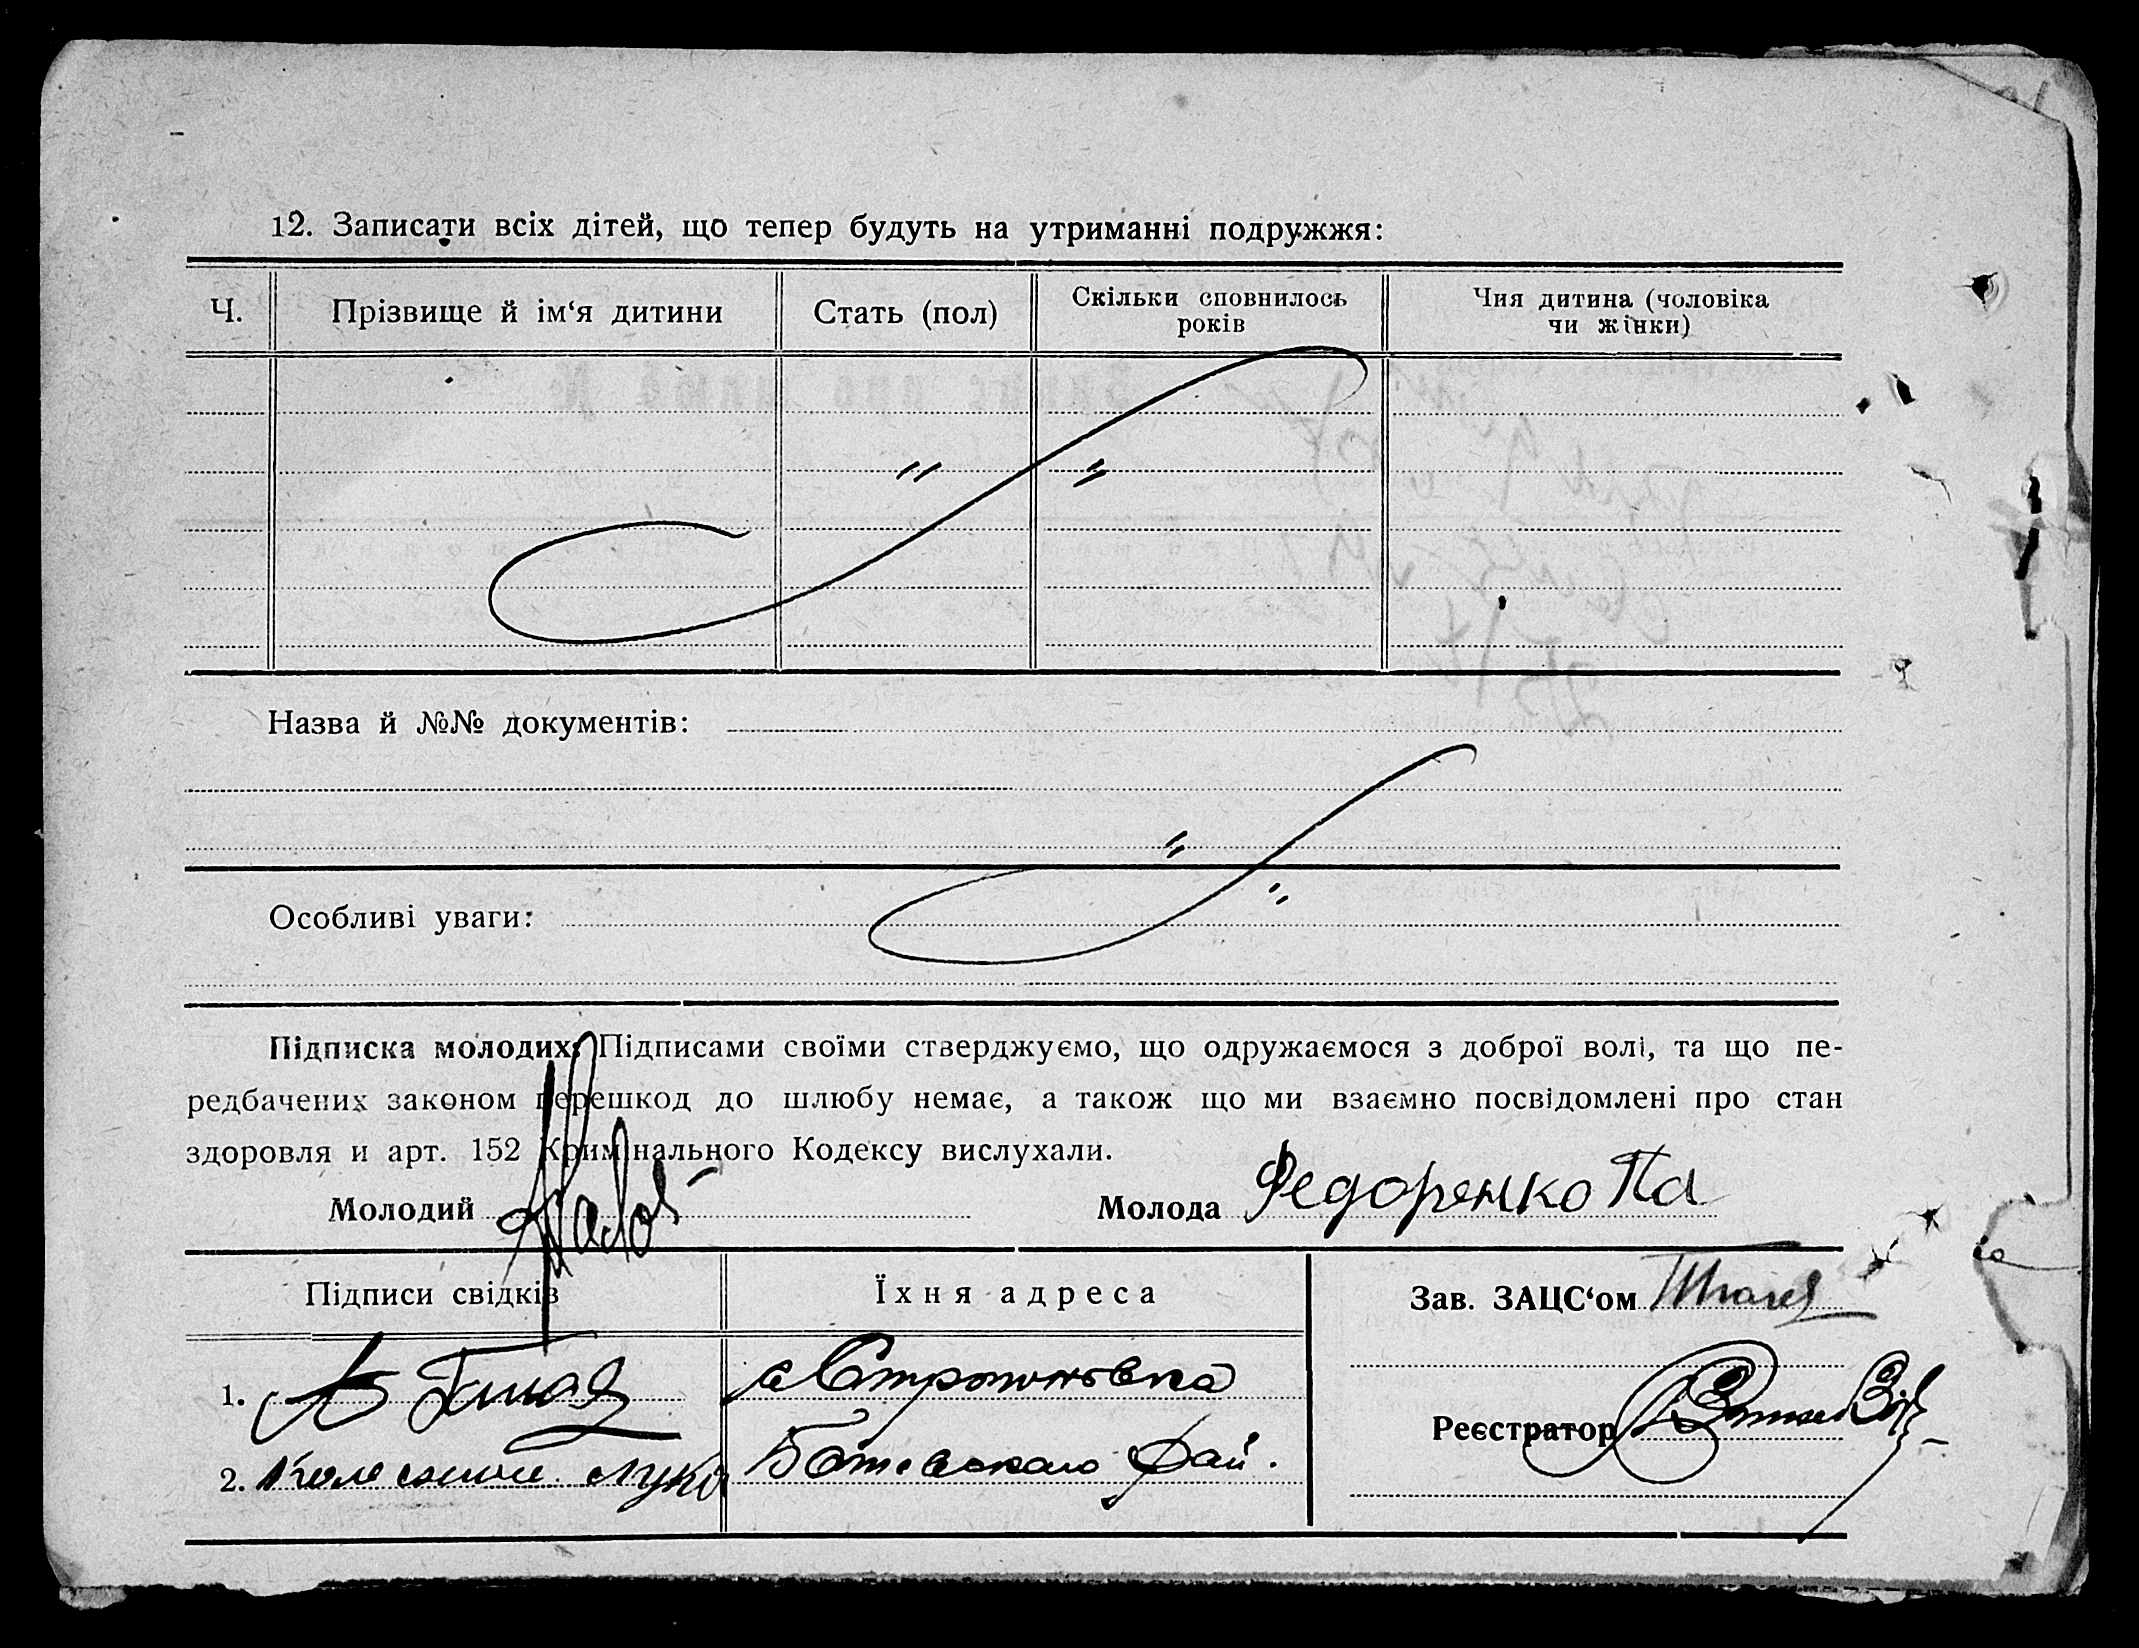 12. Записати всіх дітей, що тепер будуть на утриманні подружжя:
Ч. Прізвище й ім‘я дитини Стать (пол) Скільки сповнилось років Чия дитина (чоловіка чи жінки)
" "
Назва й №№ документів:
"
Особливі уваги: "
Підписка молодих: Підписами своїми стверджуємо, що одружаємося з доброї волі, та що пе-
редбачених законом перешкод до шлюбу немає, а також що ми взаємно посвідомлені про стан
здоровля и арт. 152 Кримінального Кодексу вислухали.
Молодий Молода Федоренко Па
Підписи свідків Їхня адреса Зав. ЗАЦС‘ом
1.
Реєстратор
2. Рай.